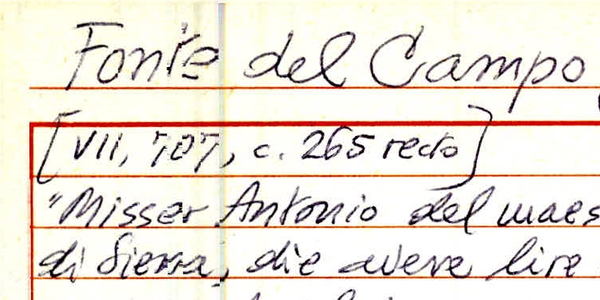 Fonte del Campo
[VII, 707, c. 265 recto]
"Misser Antonio del maes
di Siena, die avere lire